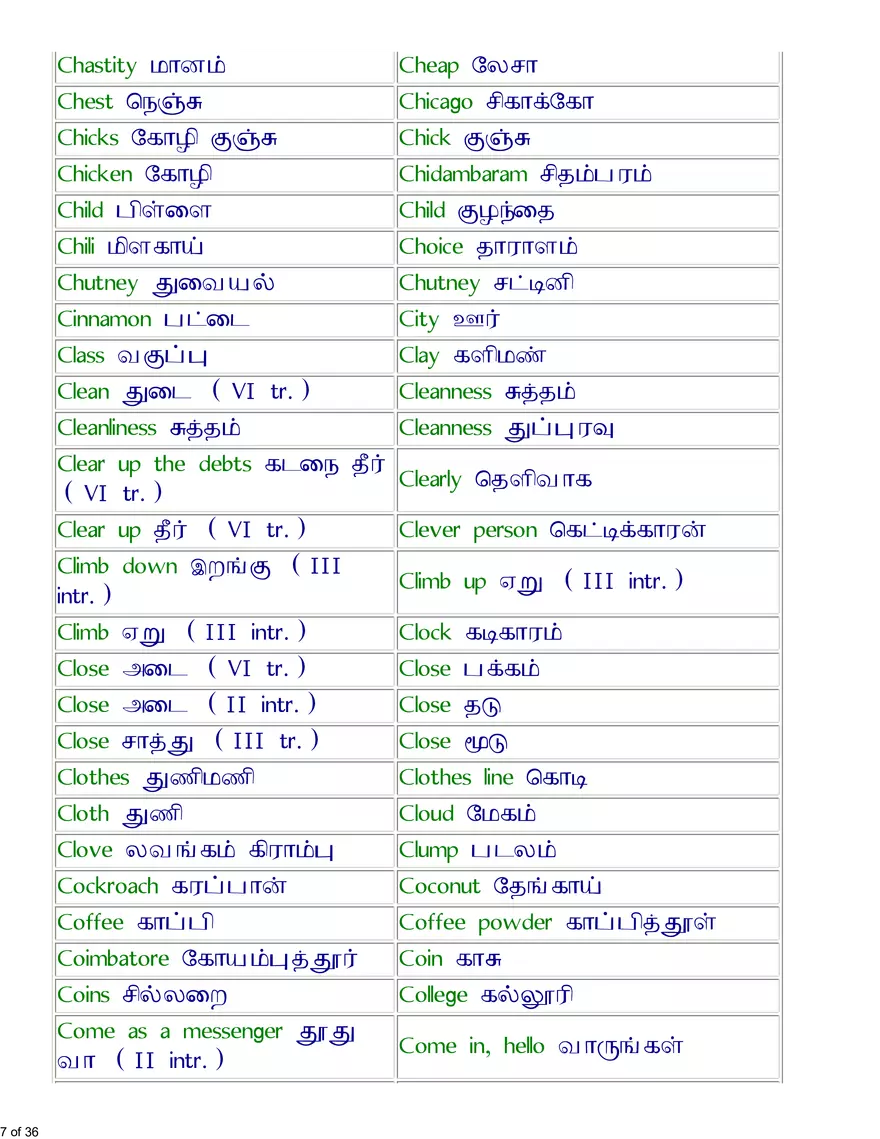 Chastity மானம்
Cheap லேசா
Chest நெஞ்சு
Chicago சிகாக்கோ
Chicks கோழி குஞ்சு
Chick குஞ்சு
Chicken கோழி
Chidambaram சிதம்பரம்
Child பிள்ளை
Child குழந்தை
Chili மிளகாய்
Choice தாராளம்
Chutney துவையல்
Chutney சட்டினி
Cinnamon பட்டை
City ஊர்
Class வகுப்பு
Clay களிமண்
Clean துடை ( VI tr. )
Cleanness சுத்தம்
Cleanliness சுத்தம்
Cleanness துப்புரவு
Clear up the debts கடநை தீர்
( VI tr. )
Clearly தெளிவாக
Clear up தீர் ( VI tr. )
Clever person கெட்டிக்காரன்
Climb down இறங்கு ( III
intr. )
Climb up ஏறு ( III intr. )
Climb ஏறு ( III intr. )
Clock கடிகாரம்
Close அடை ( VI tr. )
Close பக்கம்
Close அடை ( II intr. )
Close தடு
Close சாத்து ( III tr. )
Close மூடு
Clothes துணிமணி
Clothes line கொடி
Cloth துணி
Cloud மேகம்
Clove லவங்கம் கிராம்பு
Clump படலம்
Cockroach கரப்பான்
Coconut தேங்காய்
Coffee காப்பி
Coffee powder காப்பித்தூள்
Coimbatore கோயம்புத்தூர்
Coin காசு
Coins சில்லறை
College கல்லூரி
Come as a messenger தூது
வா ( II intr. )
Come in, hello வாருங்கள்
7 of 36